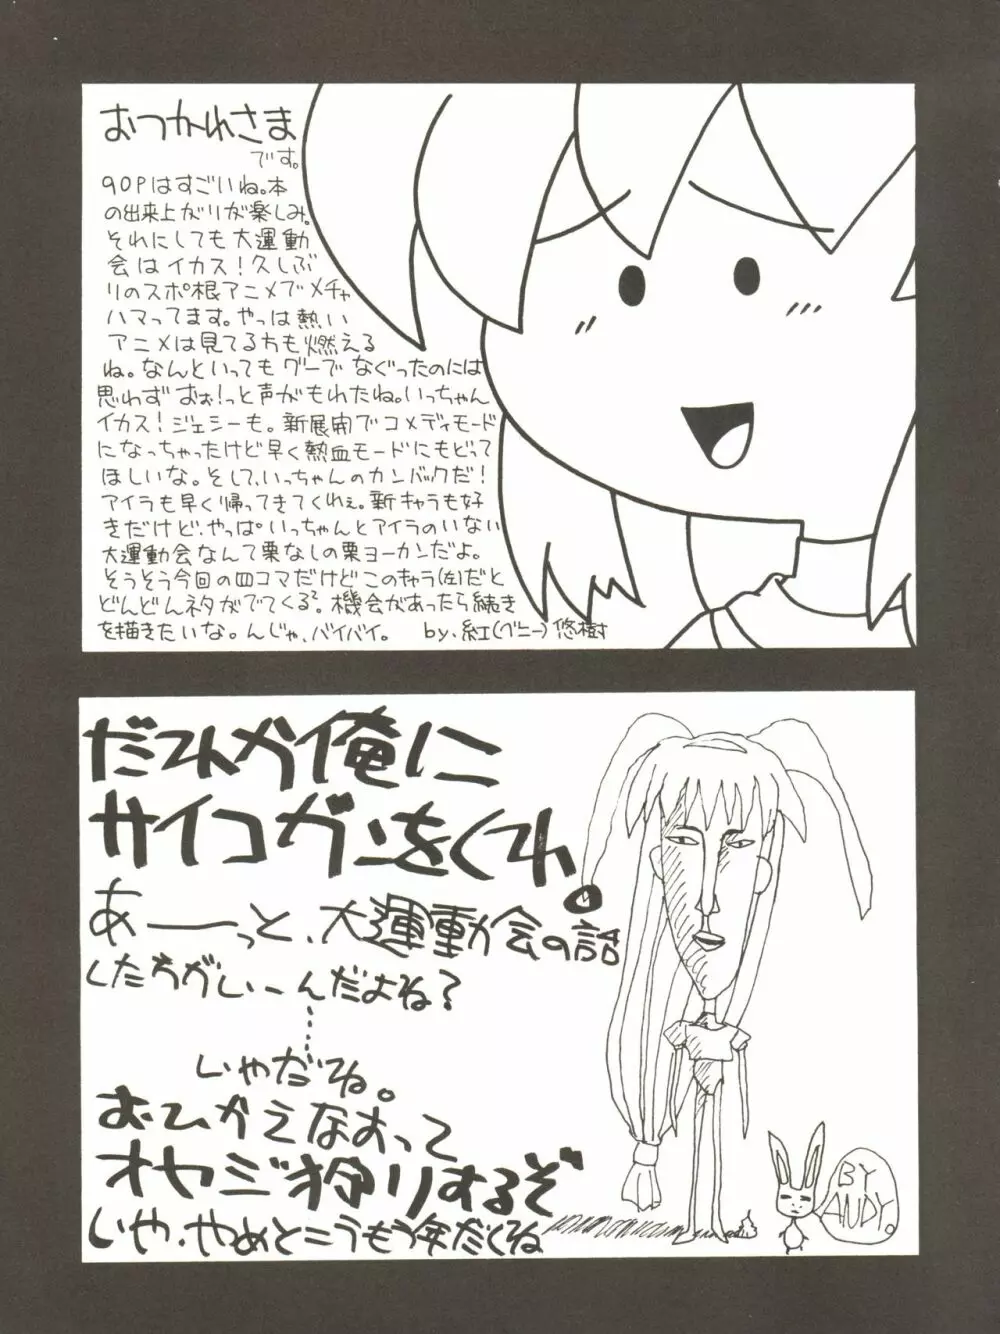 おつかれさま
です。
90Pはすごいね。本
の出来上がりが楽しみ。
それにしても大運動
会はイカス！久しぶ
りのスポ根アニメでメチャ
ハマってます。やっぱ熱い
アニメは見てる方も燃える
ね。なんといってもグーでなぐったのには
思わずおぉ！っと声がもれたね。いっちゃん
イカス！ジェシーも。新展開でコメディモード
になっちゃったけど早く熱血モードにもどって
ほしいな。そして、いっちゃんのカンバックだ！
アイラも早く帰ってきてくれぇ。新キャラも好
きだけど、やっぱいっちゃんとアイラのいない
大運動会なんて栗なしの栗ヨーカンだよ。
そうそう今回の四コマだけどこのキャラ(左)だと
どんどんネタがでてくる²。機会があったら続き
を描きたいな。んじゃ、バイバイ。 by.紅(ベニー)悠樹
だれか俺に
サイコガンをくれ。
あーーっと、大運動会の話
した方がいーんだよね？
……
いやだね。
おひかえなすって
オヤジ狩りするぞ
いや、やめとこうもう年だくね
BY
ANDY。